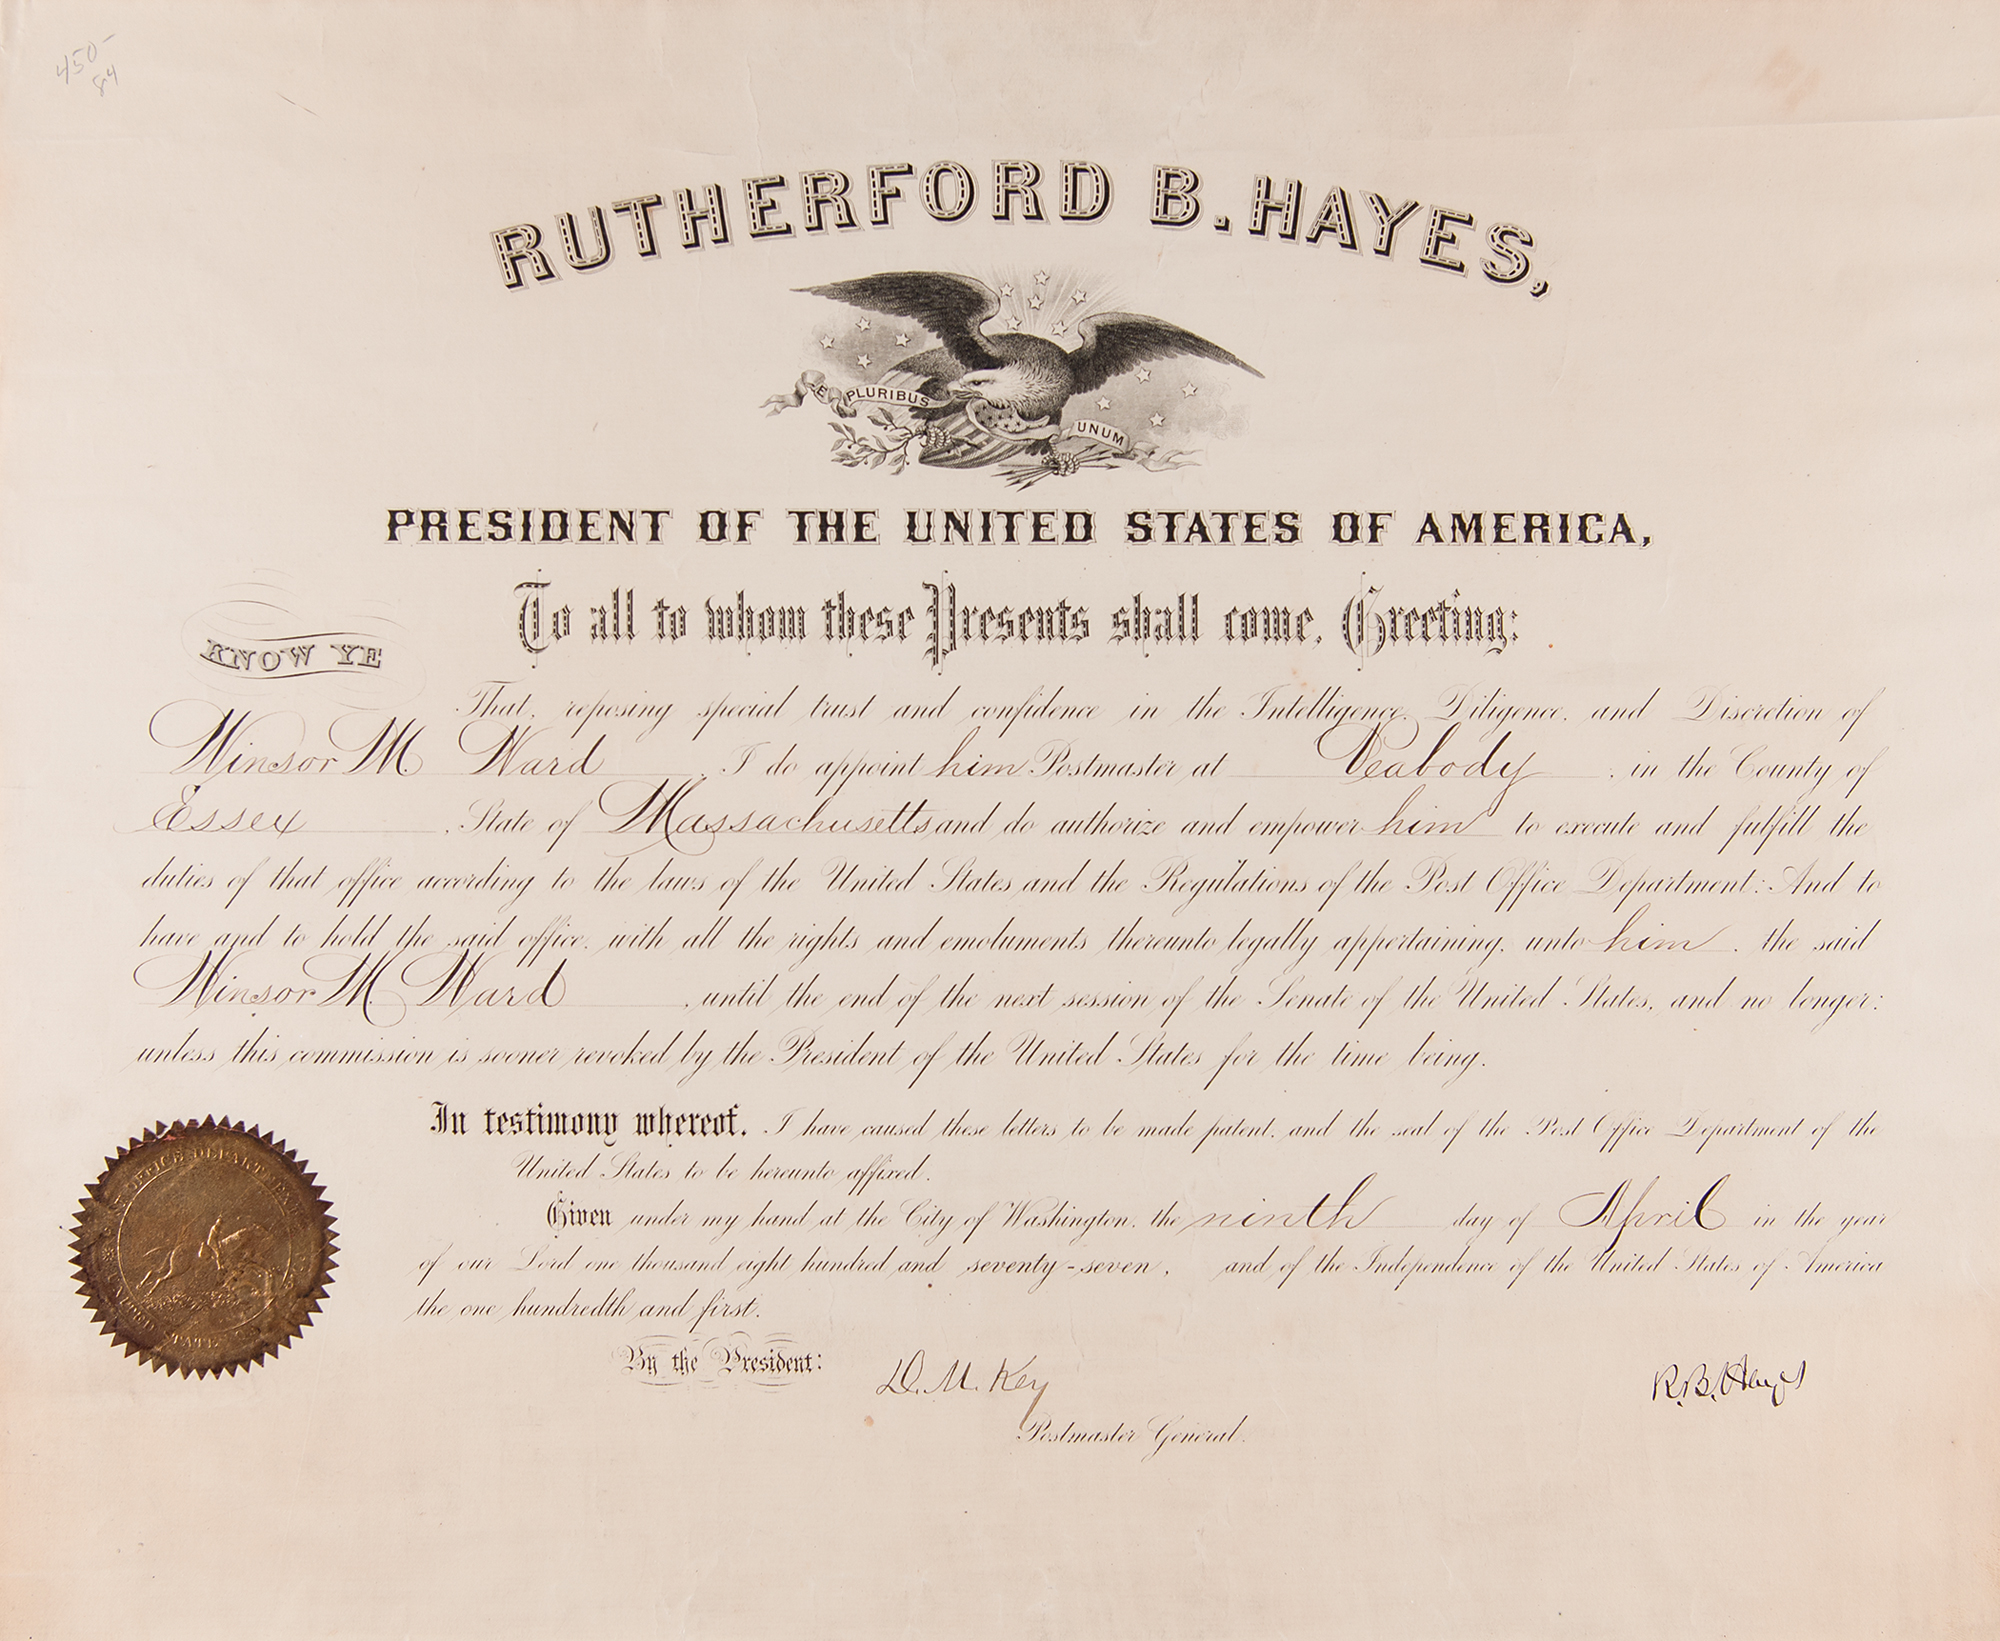 450-
84
RUTHERFORD B. HAYES,
E PLURIBUS UNUM
PRESIDENT OF THE UNITED STATES OF AMERICA,
To all to whom these Presents shall come, Greeting:
KNOW YE
That, reposing special trust and confidence in the Intelligence, Diligence, and Discretion of
Winsor M Ward, I do appoint him Postmaster at Peabody, in the County of
Essex, State of Massachusetts and do authorize and empower him to execute and fulfill the
duties of that office according to the laws of the United States and the Regulations of the Post Office Department: And to
have and to hold the said office, with all the rights and emoluments thereunto legally appertaining, unto him, the said
Winsor M Ward, until the end of the next session of the Senate of the United States, and no longer;
unless this commission is sooner revoked by the President of the United States for the time being.
In testimony whereof, I have caused these letters to be made patent, and the seal of the Post Office Department of the
United States to be hereunto affixed.
Given under my hand at the City of Washington, the ninth day of April in the year
of our Lord one thousand eight hundred and seventy-seven, and of the Independence of the United States of America
the one hundredth and first.
OFFICE DEPARTMENT
UNITED STATES
By the President:
D. M. Key
Postmaster General.
R.B. Hayes